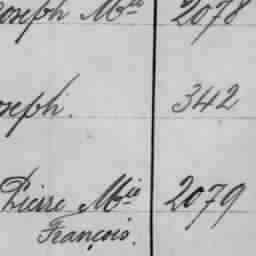 Joseph Mie 2078
Joseph. 342
Pierre Mie 2079
François.